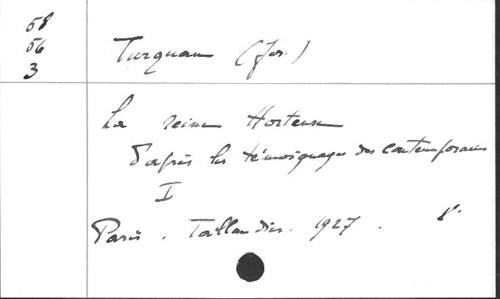 58
56
3
Turquan (Jos.)
La reine Hortense
D'après les témoignages des contemporains
I
Paris. Tallandier. 1927. 8°